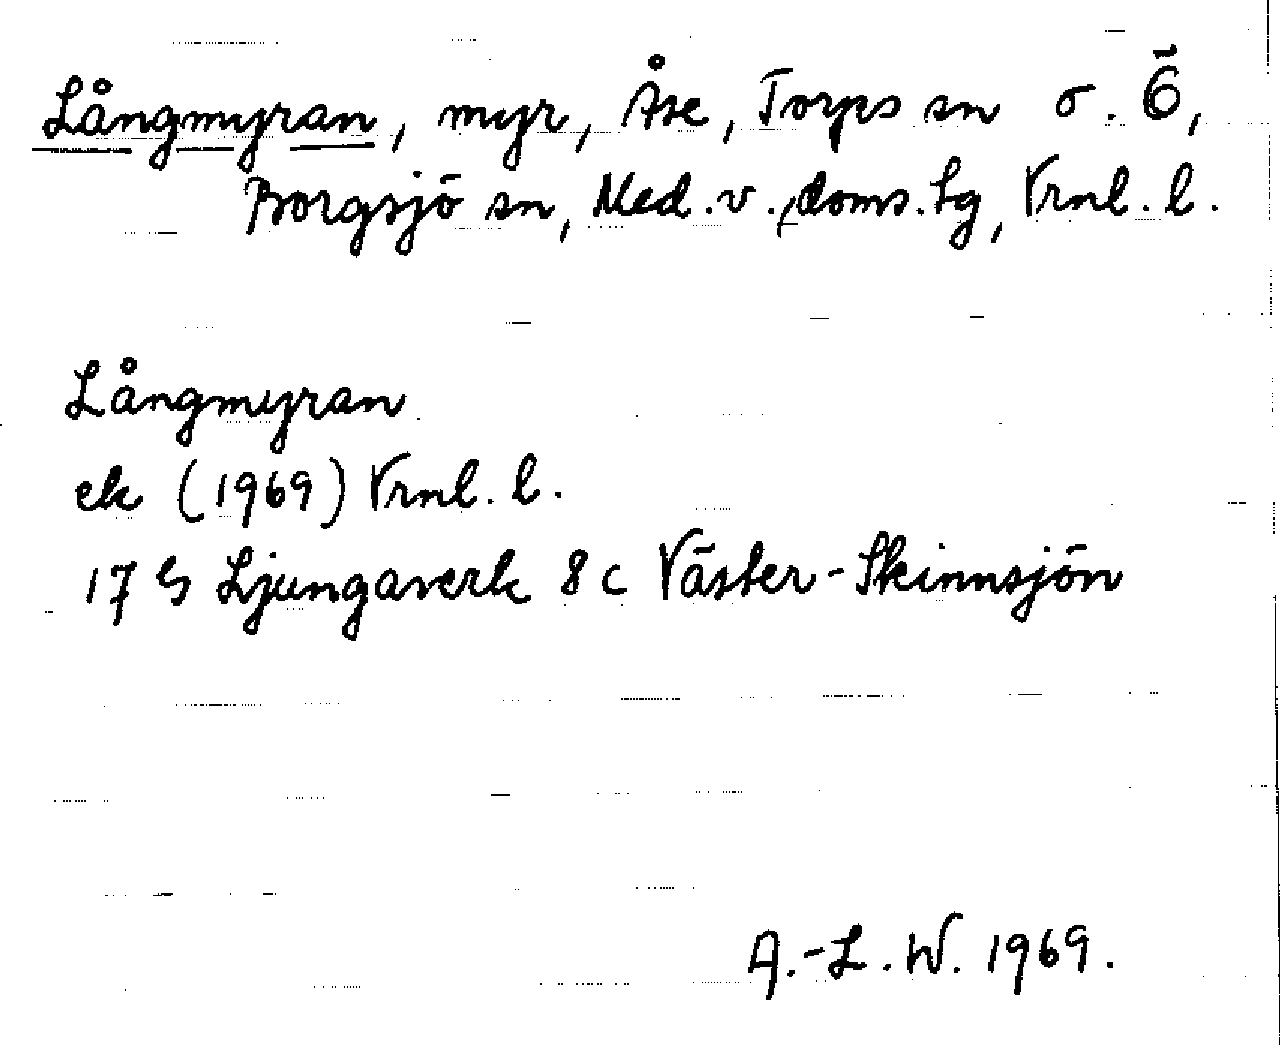 Långmyran, myr, Åse, Torps sn o. Ö,
Borgsjö sn, Med. v., doms. tg, Vrnl. l.
Långmyran
ek (1969) Vrnl. l.
17 G Ljungaverk 8 c Väster-Skinnsjön
A.-L. W. 1969.